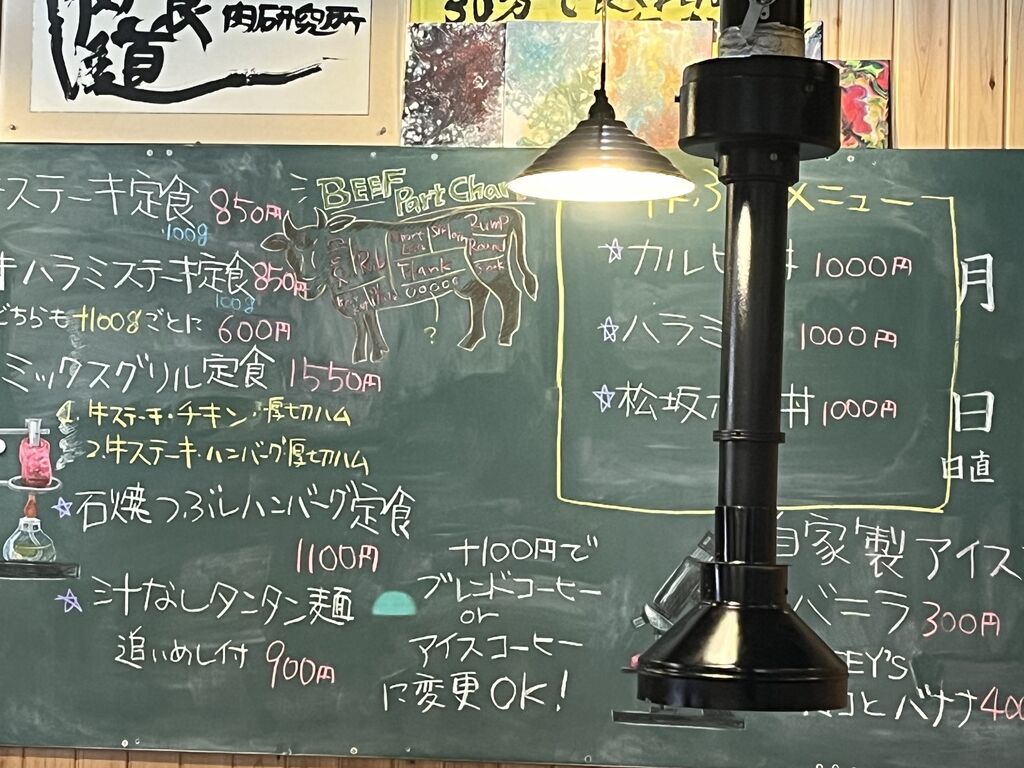 道
肉研究所
ステーキ定食 850円
100g
牛ハラミステーキ定食 850円
100g
どちらも+100gごとに 600円
ミックスグリル定食 1550円
1. 牛ステーキ・チキン・厚切ハム
2. 牛ステーキ・ハンバーグ・厚切ハム
☆石焼つぶしハンバーグ定食
1100円
☆汁なしタンタン麺
追いめし付 900円
BEEF Part Char
Rib
Sirloin
Rump
Round
Flank
?
+100円で
ブレンドコーヒー
or
アイスコーヒー
に変更OK!
メニュー
☆カルビ 1000円
☆ハラミ 1000円
☆松坂 丼 1000円
月
日
日直
自家製アイス
バニラ 300円
EY'S
とバナナ 400